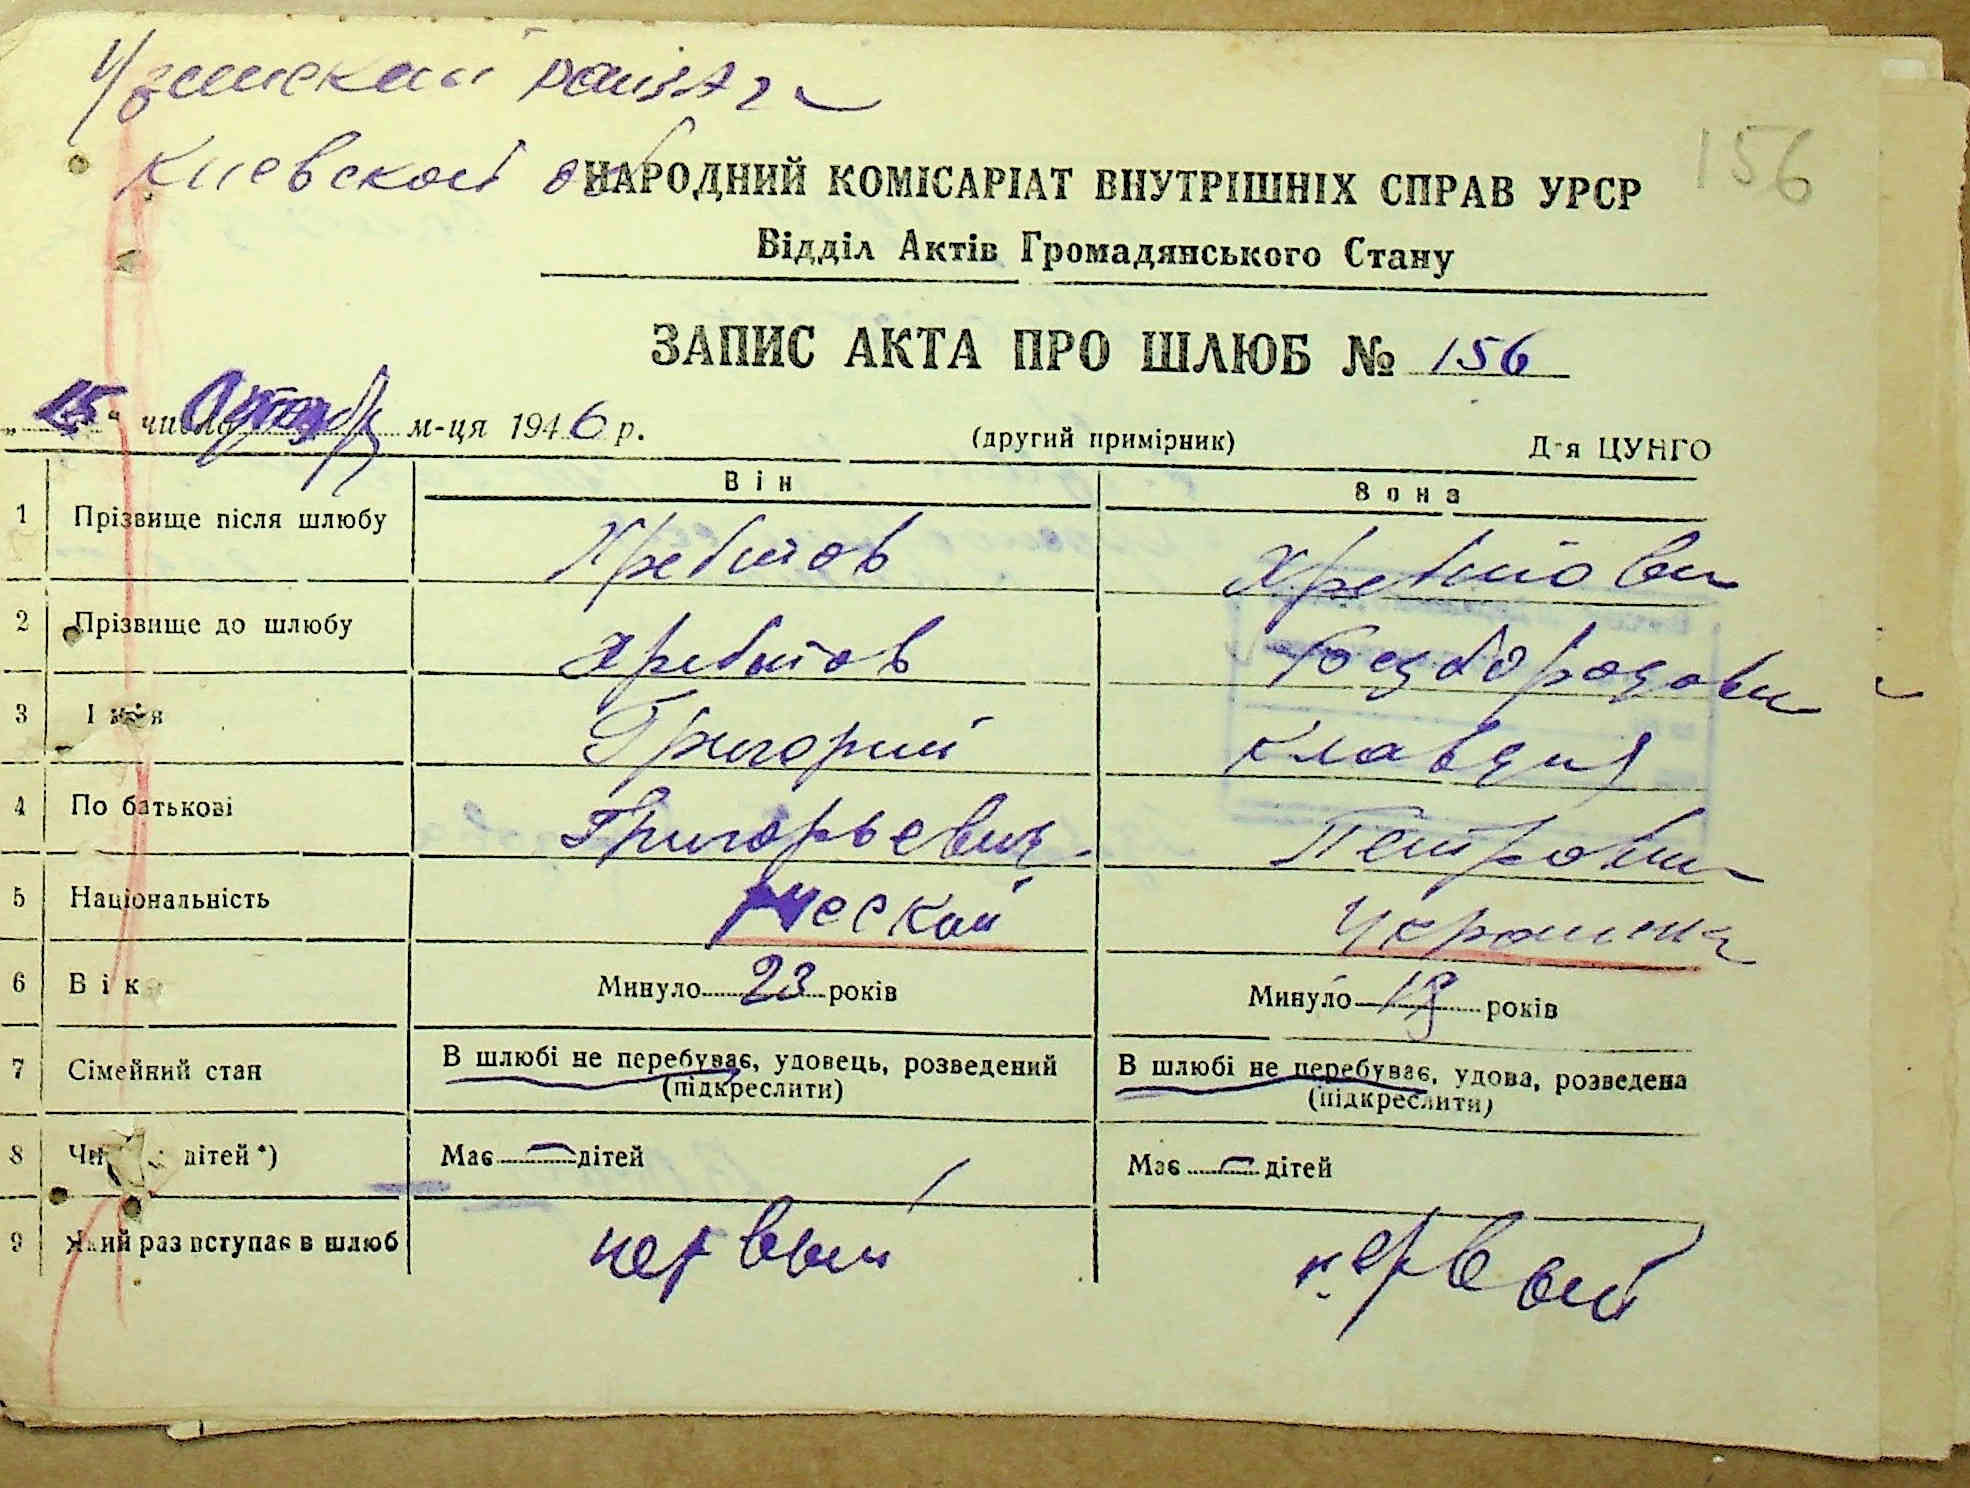 Узинский райзагс
Киевской об
156
НАРОДНИЙ КОМІСАРІАТ ВНУТРІШНІХ СПРАВ УРСР
Відділ Актів Громадянського Стану
ЗАПИС АКТА ПРО ШЛЮБ № 156
„15“ числа м-ця 1946 р. (другий примірник) Д-я ЦУНГО
Він Вона
1 Прізвище після шлюбу Хребтов Хребтова
2 Прізвище до шлюбу Хребтов Безбородова
3 Ім'я Григорий Клавдия
4 По батькові Григорьевич Петровна
5 Національність русский Украинка
6 Вік Минуло 23 років Минуло 19 років
7 Сімейний стан В шлюбі не перебуває, удовець, розведений (підкреслити) В шлюбі не перебуває, удова, розведена (підкреслити)
8 Число дітей *) Має — дітей Має — дітей
9 Який раз вступає в шлюб первый первый